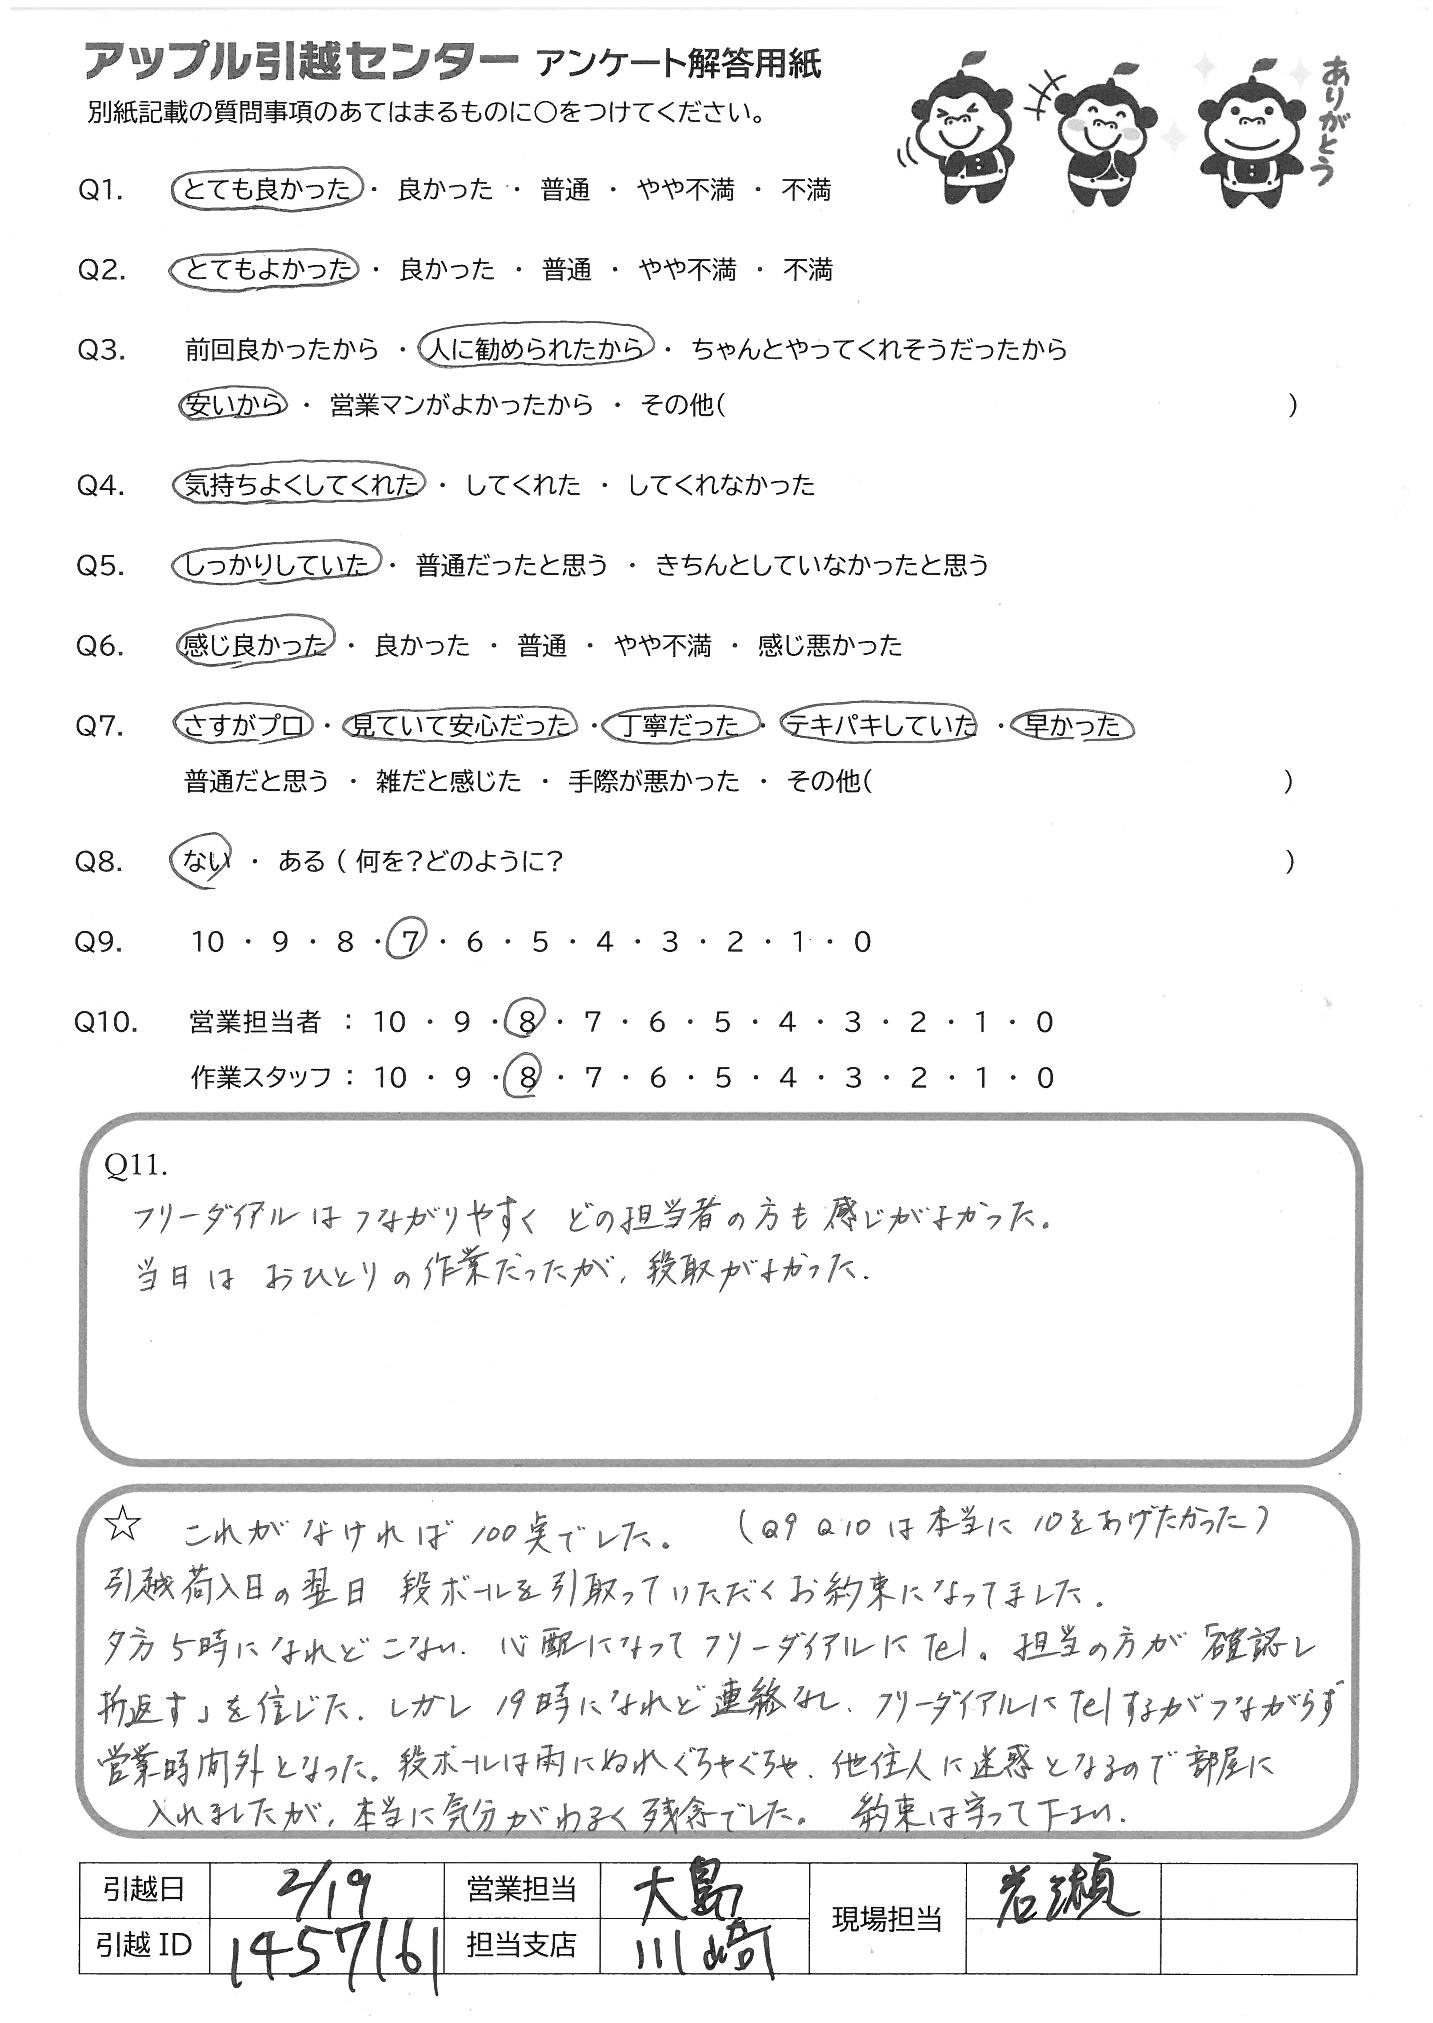 アップル引越センター アンケート解答用紙
別紙記載の質問事項のあてはまるものに○をつけてください。
ありがとう
Q1. とても良かった ・ 良かった ・ 普通 ・ やや不満 ・ 不満
Q2. とてもよかった ・ 良かった ・ 普通 ・ やや不満 ・ 不満
Q3. 前回良かったから ・ 人に勧められたから ・ ちゃんとやってくれそうだったから
安いから ・ 営業マンがよかったから ・ その他( )
Q4. 気持ちよくしてくれた ・ してくれた ・ してくれなかった
Q5. しっかりしていた ・ 普通だったと思う ・ きちんとしていなかったと思う
Q6. 感じ良かった ・ 良かった ・ 普通 ・ やや不満 ・ 感じ悪かった
Q7. さすがプロ ・ 見ていて安心だった ・ 丁寧だった ・ テキパキしていた ・ 早かった
普通だと思う ・ 雑だと感じた ・ 手際が悪かった ・ その他( )
Q8. ない ・ ある ( 何を?どのように? )
Q9. 10 ・ 9 ・ 8 ・ 7 ・ 6 ・ 5 ・ 4 ・ 3 ・ 2 ・ 1 ・ 0
Q10. 営業担当者 : 10 ・ 9 ・ 8 ・ 7 ・ 6 ・ 5 ・ 4 ・ 3 ・ 2 ・ 1 ・ 0
作業スタッフ : 10 ・ 9 ・ 8 ・ 7 ・ 6 ・ 5 ・ 4 ・ 3 ・ 2 ・ 1 ・ 0
Q11.
フリーダイアルはつながりやすく どの担当者の方も感じがよかった。
当日は おひとりの作業だったが、段取がよかった.
☆ これがなければ100点でした。 (Q9 Q10は本当に10をあげたかった)
引越荷入日の翌日 段ボールを引取っていただくお約束になってました.
夕方5時になれどこない. 心配になってフリーダイアルにTel。担当の方が「確認し
折返す」を信じた. しかし 19時になれど連絡なし. フリーダイアルにTelするがつながらず
営業時間外となった。段ボールは雨にぬれぐちゃぐちゃ. 他住人に迷惑となるので部屋に
入れましたが、本当に気分がわるく残念でした。 約束は守って下さい.
引越日 2/19 営業担当 大島 現場担当 岩瀬
引越ID 1457161 担当支店 川崎